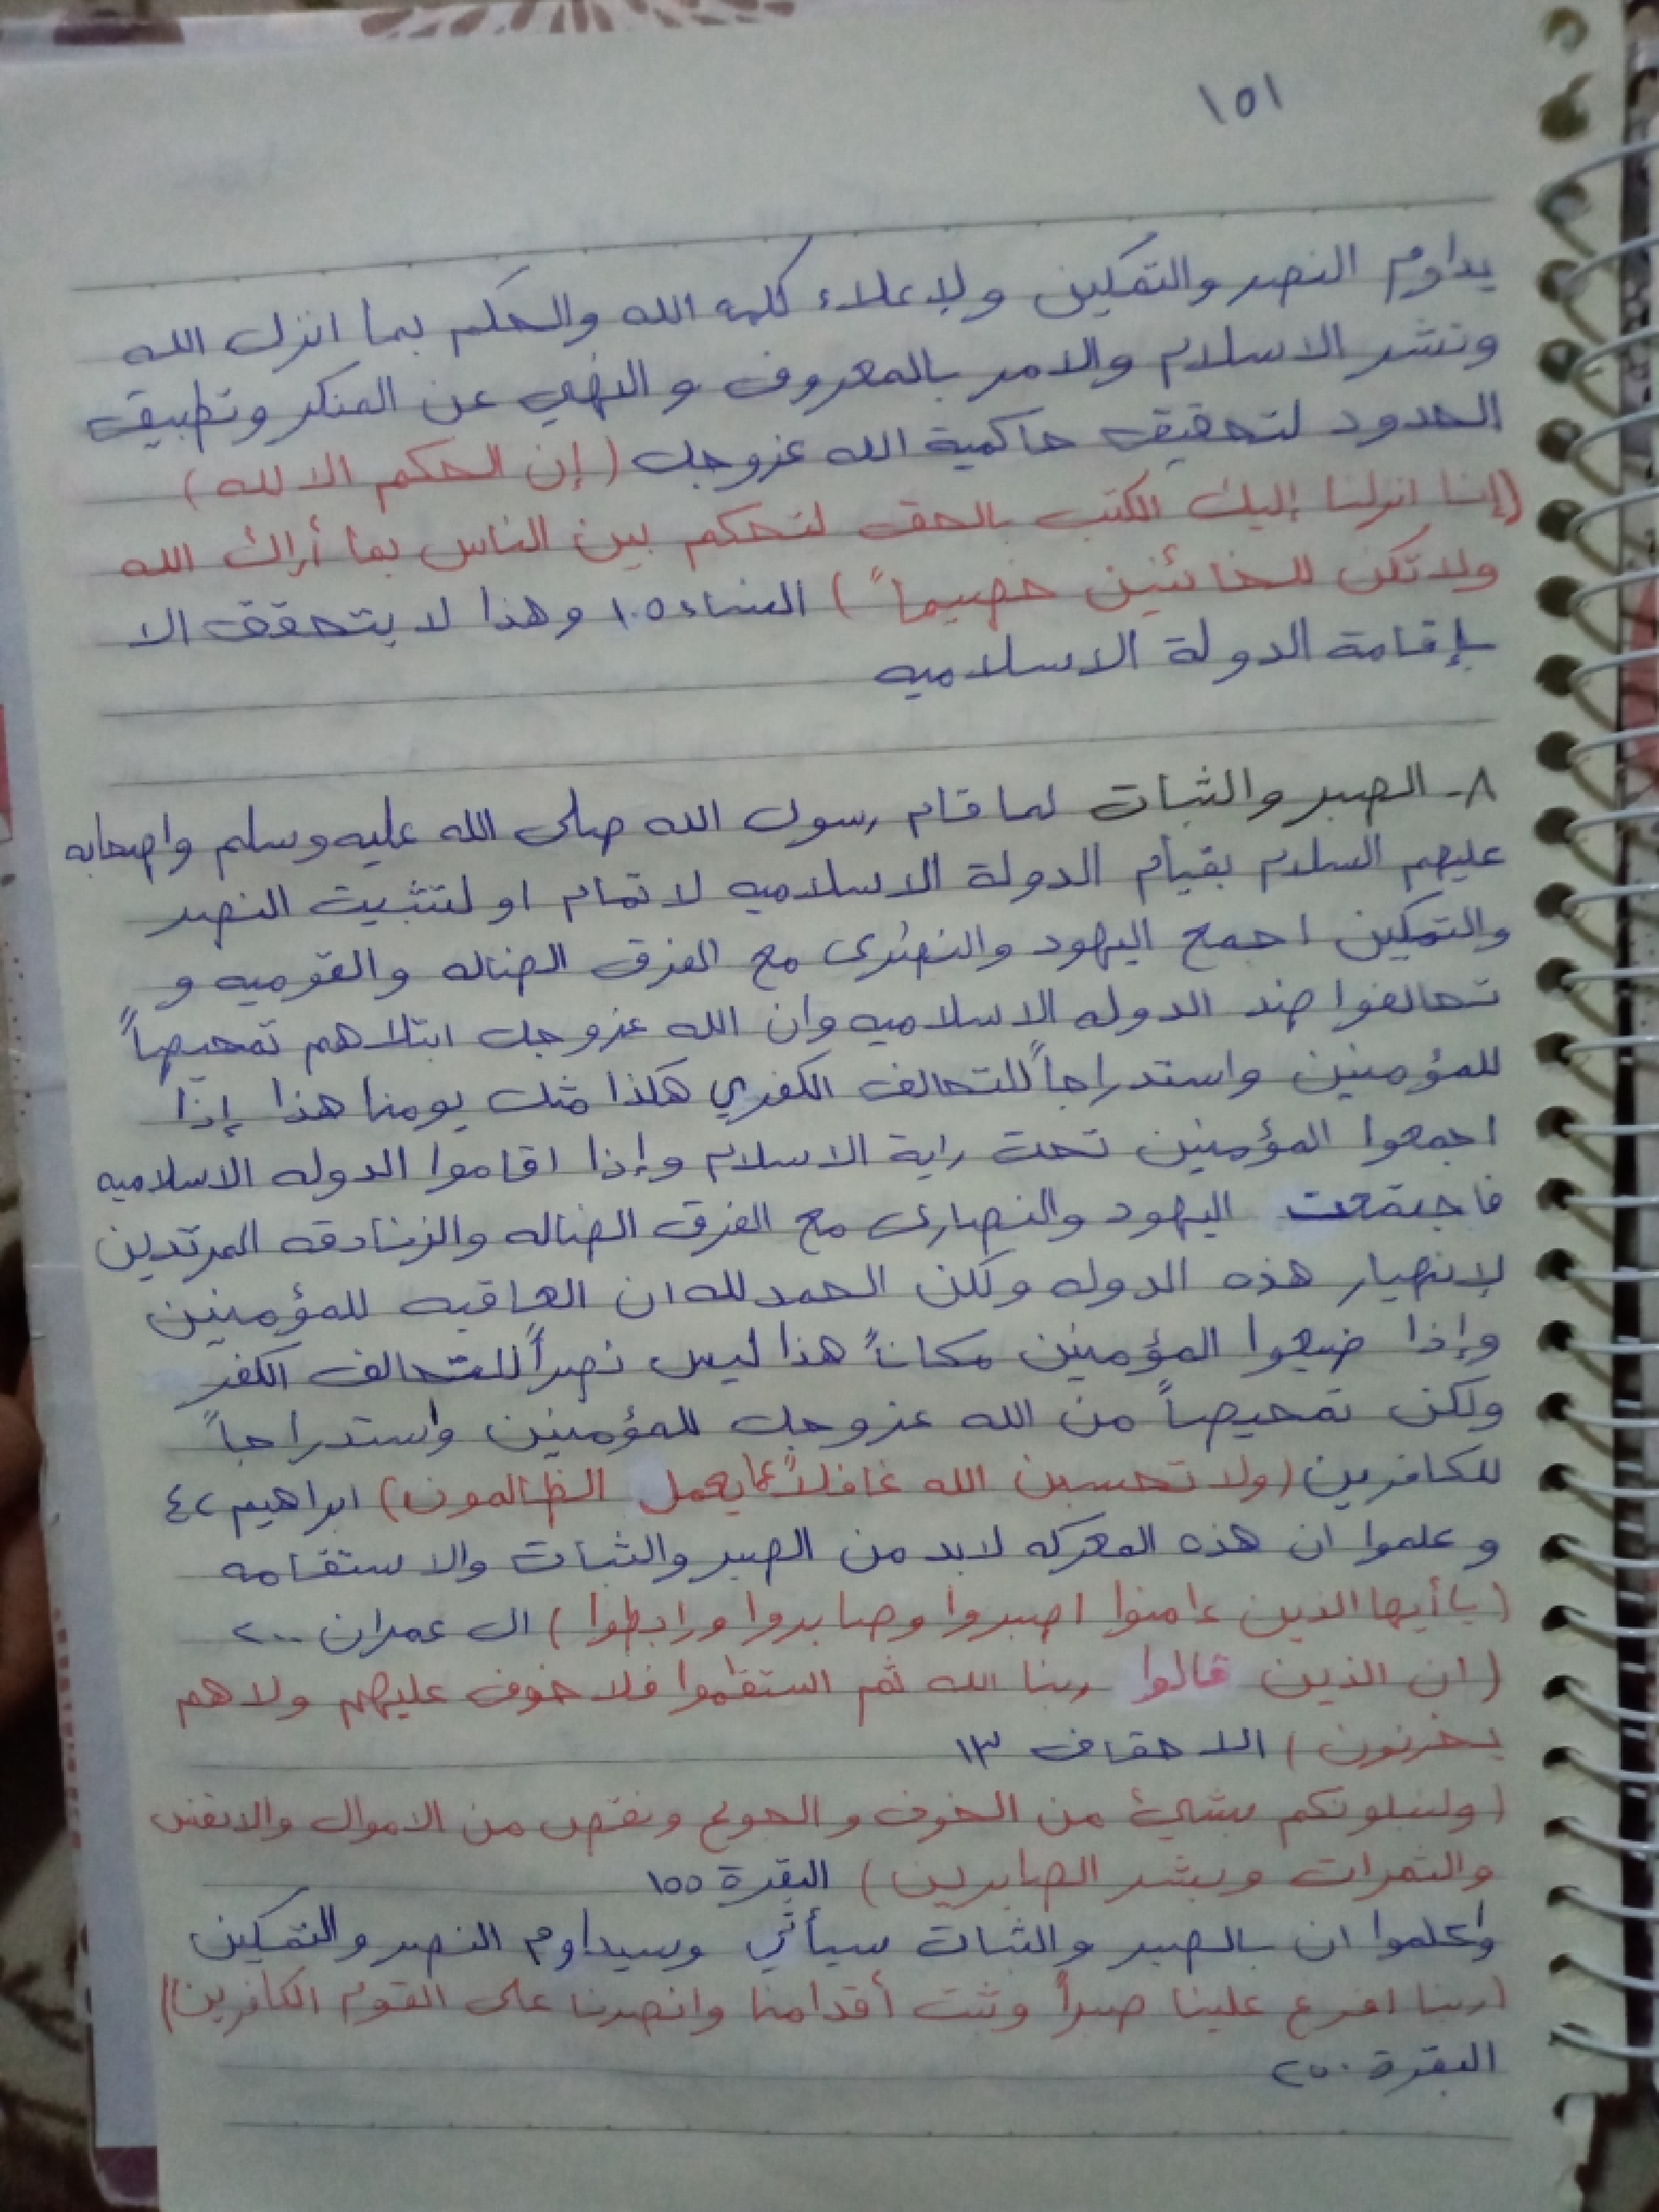 ١٥١
يداوم النصر والتمكين ولإعلاء كلمه الله والحكم بما انزل الله
ونشر الاسلام والامر بالمعروف والنهي عن المنكر وتطبيق
الحدود لتحقيق حاكمية الله عزوجل (إن الحكم الا لله)
(إنا انزلنا إليك الكتب بالحق لتحكم بين الناس بما أراك الله
ولا تكن للخائنين خصيماً) النساء ١٠٥ وهذا لا يتحقق الا
بإقامة الدولة الاسلاميه
٨- الصبر والثبات لما قام رسول الله صلى الله عليه وسلم واصحابه
عليهم السلام بقيام الدولة الاسلاميه لاتمام او لتثبيت النصر
والتمكين اجمع اليهود والنصرى مع الفرق الضاله والقوميه و
تحالفوا ضد الدوله الاسلاميه وان الله عزوجل ابتلاهم تمحيصاً
للمؤمنين واستدراجاً للتحالف الكفري هكذا مثل يومنا هذا إذا
اجمعوا المؤمنين تحت راية الاسلام وإذا اقاموا الدوله الاسلاميه
فاجتمعت اليهود والنصارى مع الفرق الضاله والزنادقه المرتدين
لإنهيار هذه الدوله ولكن الحمدلله ان العاقبه للمؤمنين
وإذا ضيعوا المؤمنين مكاناً هذا ليس نصراً للتحالف الكفر
ولكن تمحيصاً من الله عزوجل للمؤمنين واستدراجاً
للكافرين (ولا تحسبن الله غافلاً عما يعمل الظالمون) ابراهيم ٤٢
وعلموا ان هذه المعركه لابد من الصبر والثبات والاستقامه
(يا أيها الذين ءامنوا اصبروا وصابروا ورابطوا) ال عمران ٢٠٠
(ان الذين قالوا ربنا الله ثم استقموا فلا خوف عليهم ولا هم
يحزنون) الاحقاف ١٣
(ولنبلونكم بشيء من الخوف والجوع ونقص من الاموال والانفس
والثمرات وبشر الصابرين) البقرة ١٥٥
واعلموا ان بالصبر والثبات سيأتي وسيداوم النصر والتمكين
(ربنا افرغ علينا صبراً وثبت أقدامنا وانصرنا على القوم الكافرين)
البقرة ٢٥٠